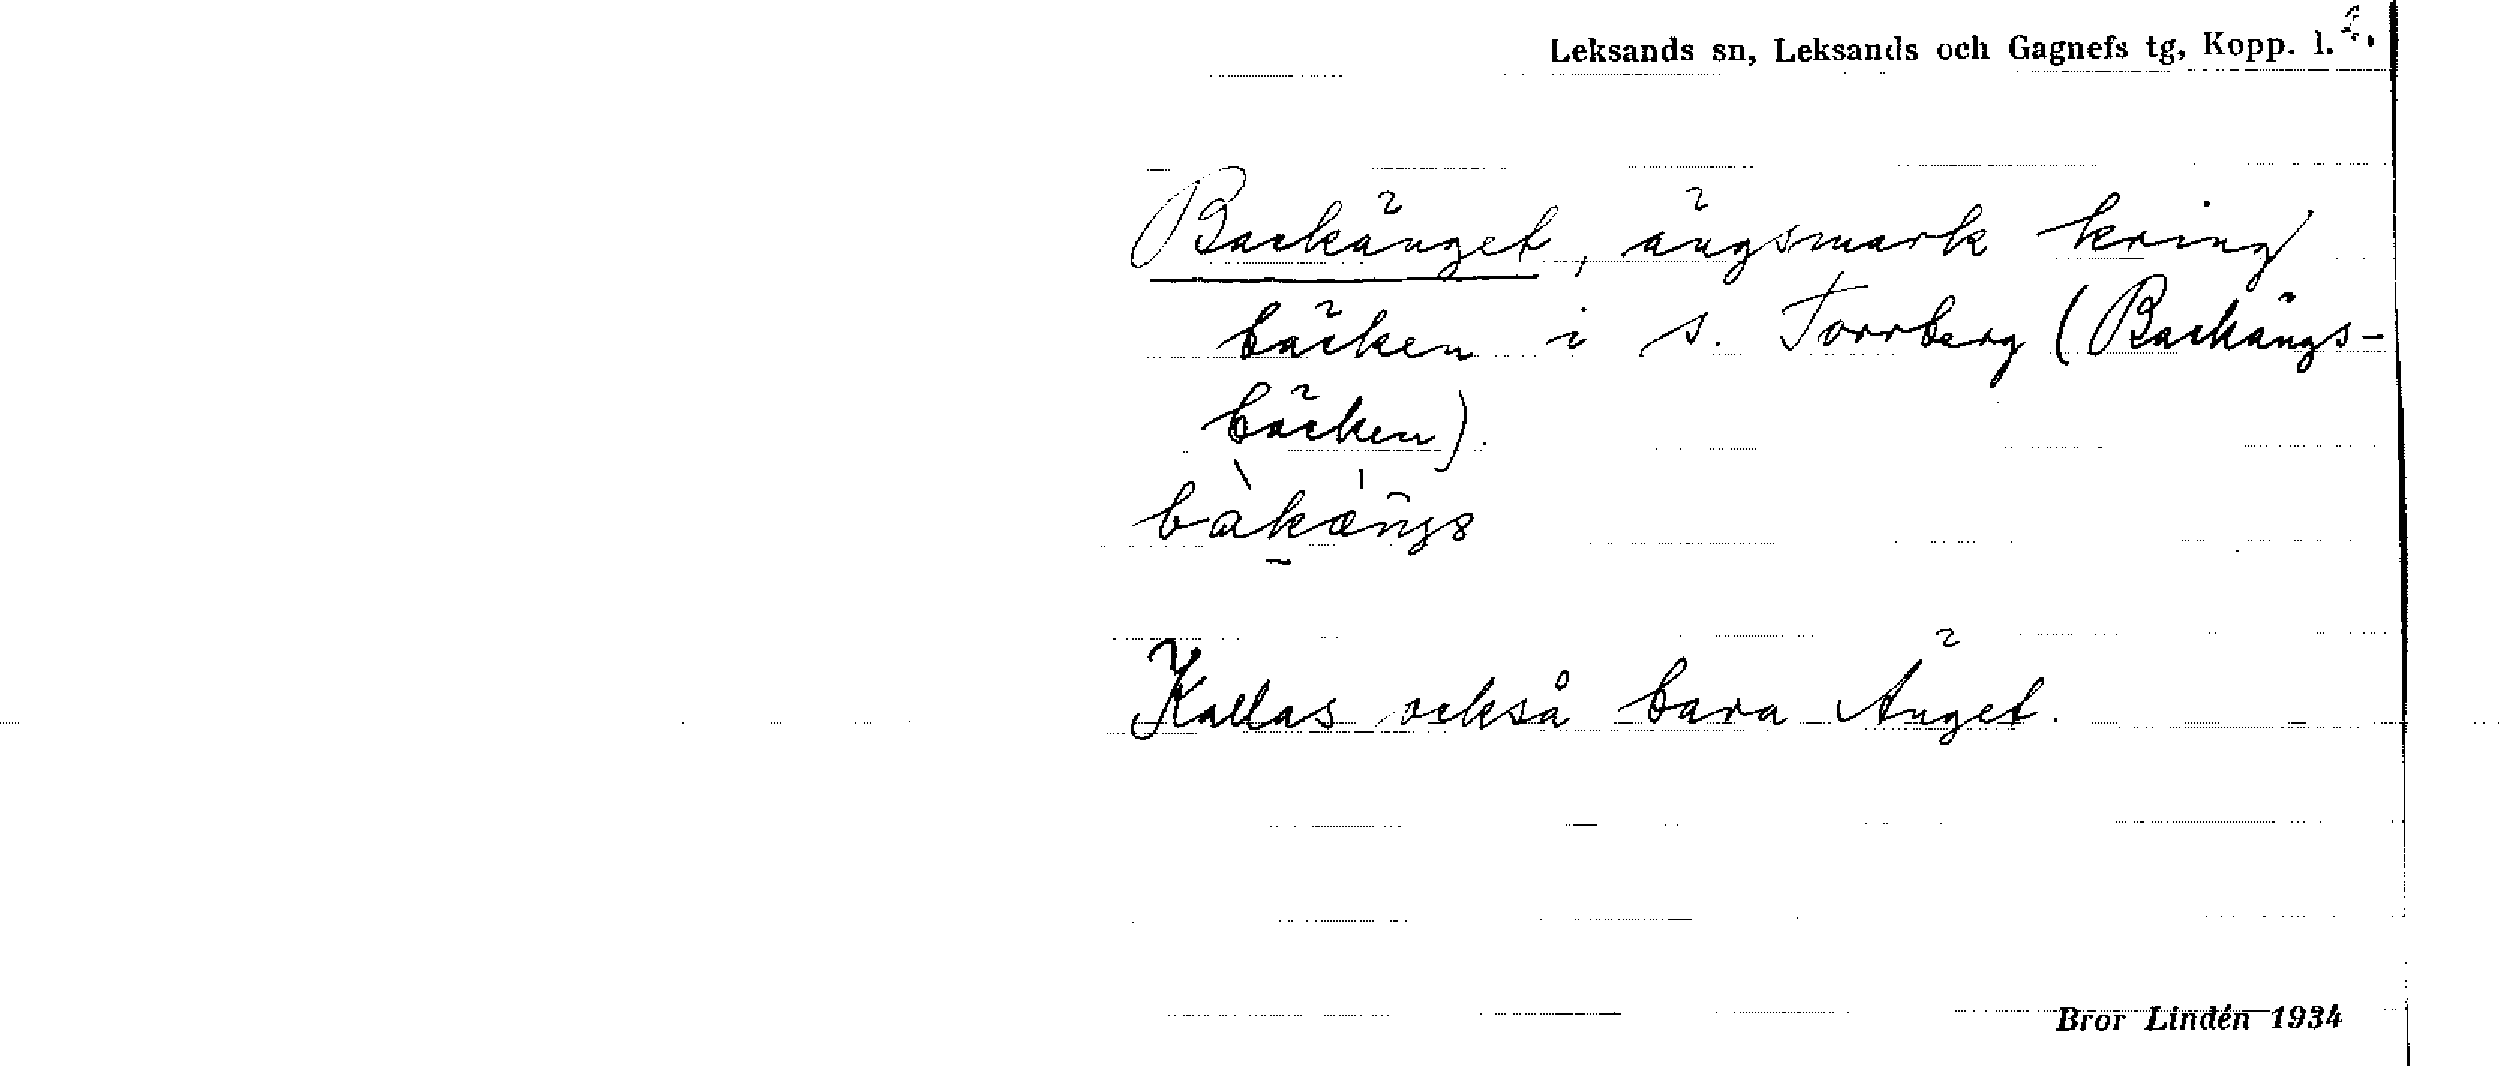 Leksands sn, Leksands och Gagnefs tg, Kopp. l.
Backänget, ängsmark kring
bäcken i s. Torrberg (Backängs-
bäcken).
bàkäŋs
Kallas också bara Änget.
Bror Lindén 1934